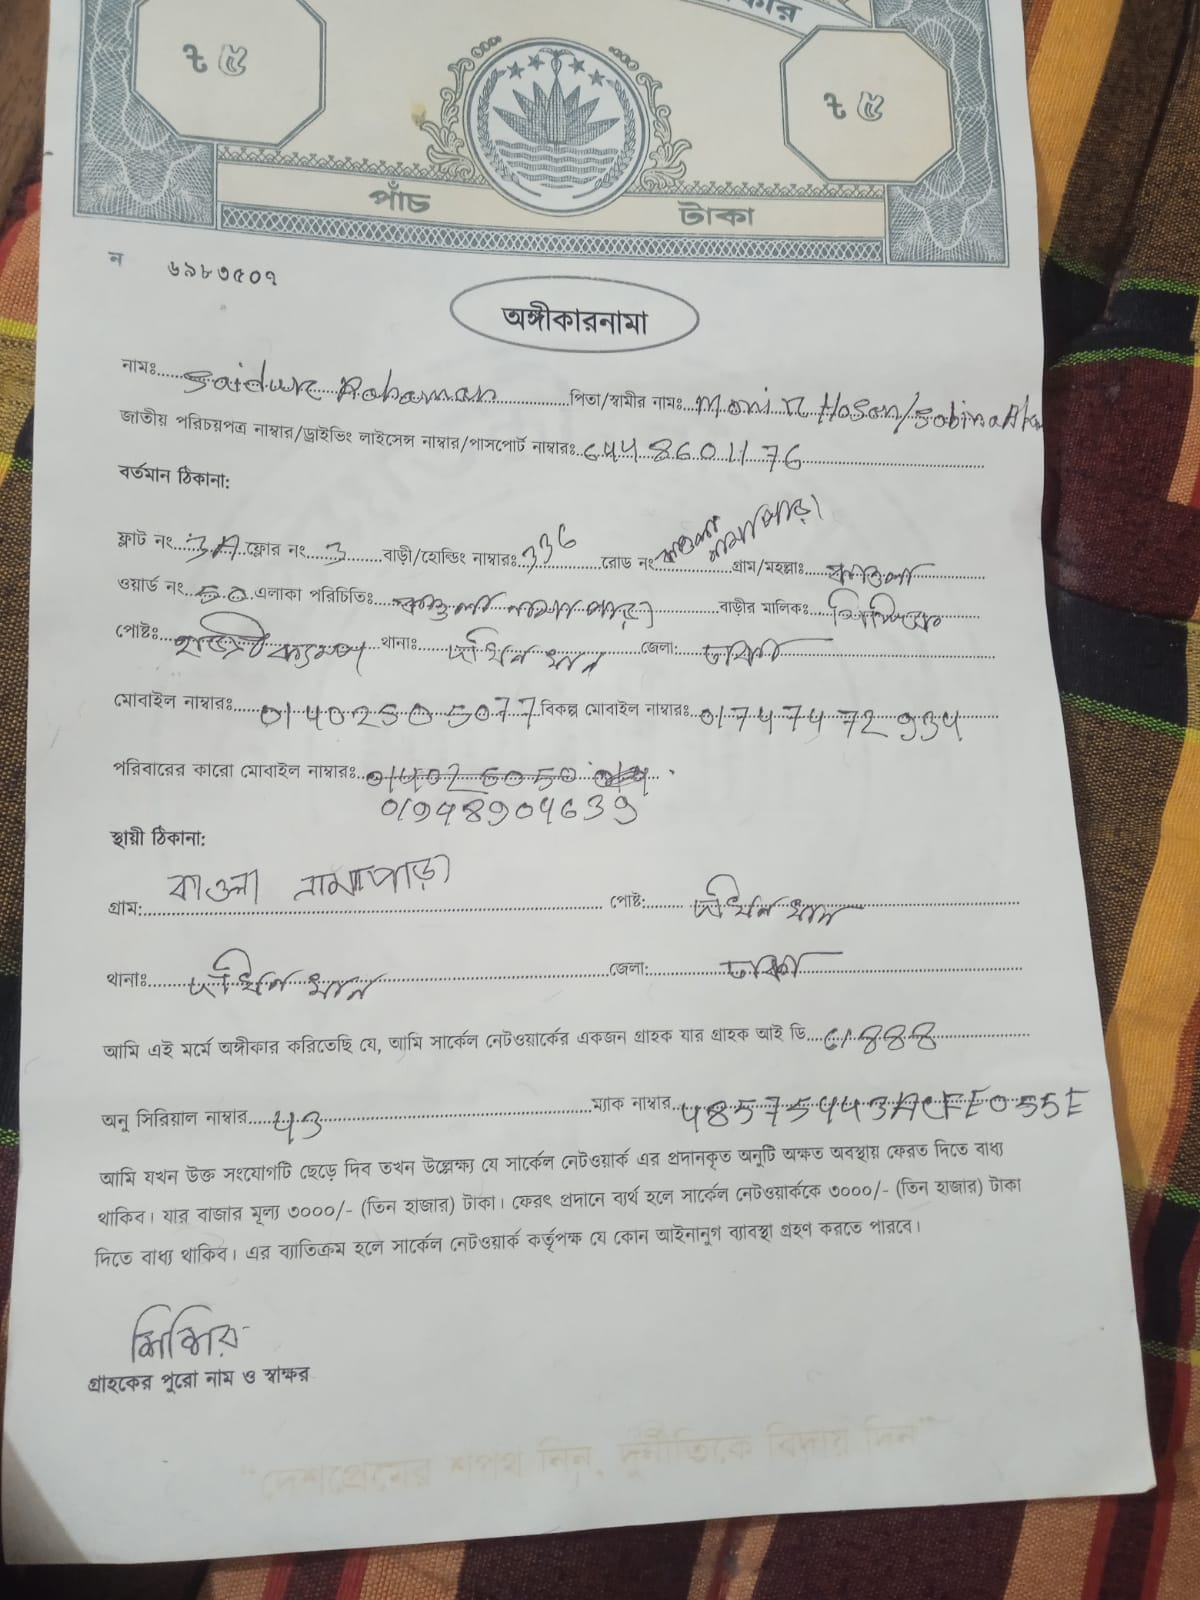 ৳ ৫
৳ ৫
পাঁচ টাকা
ন ৬৯৮৩৫০৭
অঙ্গীকারনামা
নামঃ Saidur Rahaman পিতা/স্বামীর নামঃ Monir Hosen/Sabina
জাতীয় পরিচয়পত্র নাম্বার/ড্রাইভিং লাইসেন্স নাম্বার/পাসপোর্ট নাম্বারঃ
বর্তমান ঠিকানা:
ফ্লাট নং 3A ফ্লোর নং 3 বাড়ী/হোল্ডিং নাম্বারঃ 336 রোড নং কাওলা নামাপাড়া গ্রাম/মহল্লাঃ কাওলা
ওয়ার্ড নং 50 এলাকা পরিচিতিঃ কাওলা নামাপাড়া বাড়ীর মালিকঃ
পোষ্টঃ থানাঃ দক্ষিন খান জেলা: ঢাকা
মোবাইল নাম্বারঃ 01402505077 বিকল্প মোবাইল নাম্বারঃ 01747472934
পরিবারের কারো মোবাইল নাম্বারঃ
01948904639
স্থায়ী ঠিকানা:
গ্রাম: কাওলা নামাপাড়া পোষ্ট: দক্ষিন খান
থানাঃ দক্ষিন খান জেলা: ঢাকা
আমি এই মর্মে অঙ্গীকার করিতেছি যে, আমি সার্কেল নেটওয়ার্কের একজন গ্রাহক যার গ্রাহক আই ডি
অনু সিরিয়াল নাম্বার 43 ম্যাক নাম্বার 48575443ACFE055E
আমি যখন উক্ত সংযোগটি ছেড়ে দিব তখন উল্লেক্ষ্য যে সার্কেল নেটওয়ার্ক এর প্রদানকৃত অনুটি অক্ষত অবস্থায় ফেরত দিতে বাধ্য
থাকিব। যার বাজার মূল্য ৩০০০/- (তিন হাজার) টাকা। ফেরৎ প্রদানে ব্যর্থ হলে সার্কেল নেটওয়ার্ককে ৩০০০/- (তিন হাজার) টাকা
দিতে বাধ্য থাকিব। এর ব্যাতিক্রম হলে সার্কেল নেটওয়ার্ক কর্তৃপক্ষ যে কোন আইনানুগ ব্যাবস্থা গ্রহণ করতে পারবে।
শিশির
গ্রাহকের পুরো নাম ও স্বাক্ষর
"দেশপ্রেমের শপথ নিন, দুর্নীতিকে বিদায় দিন"